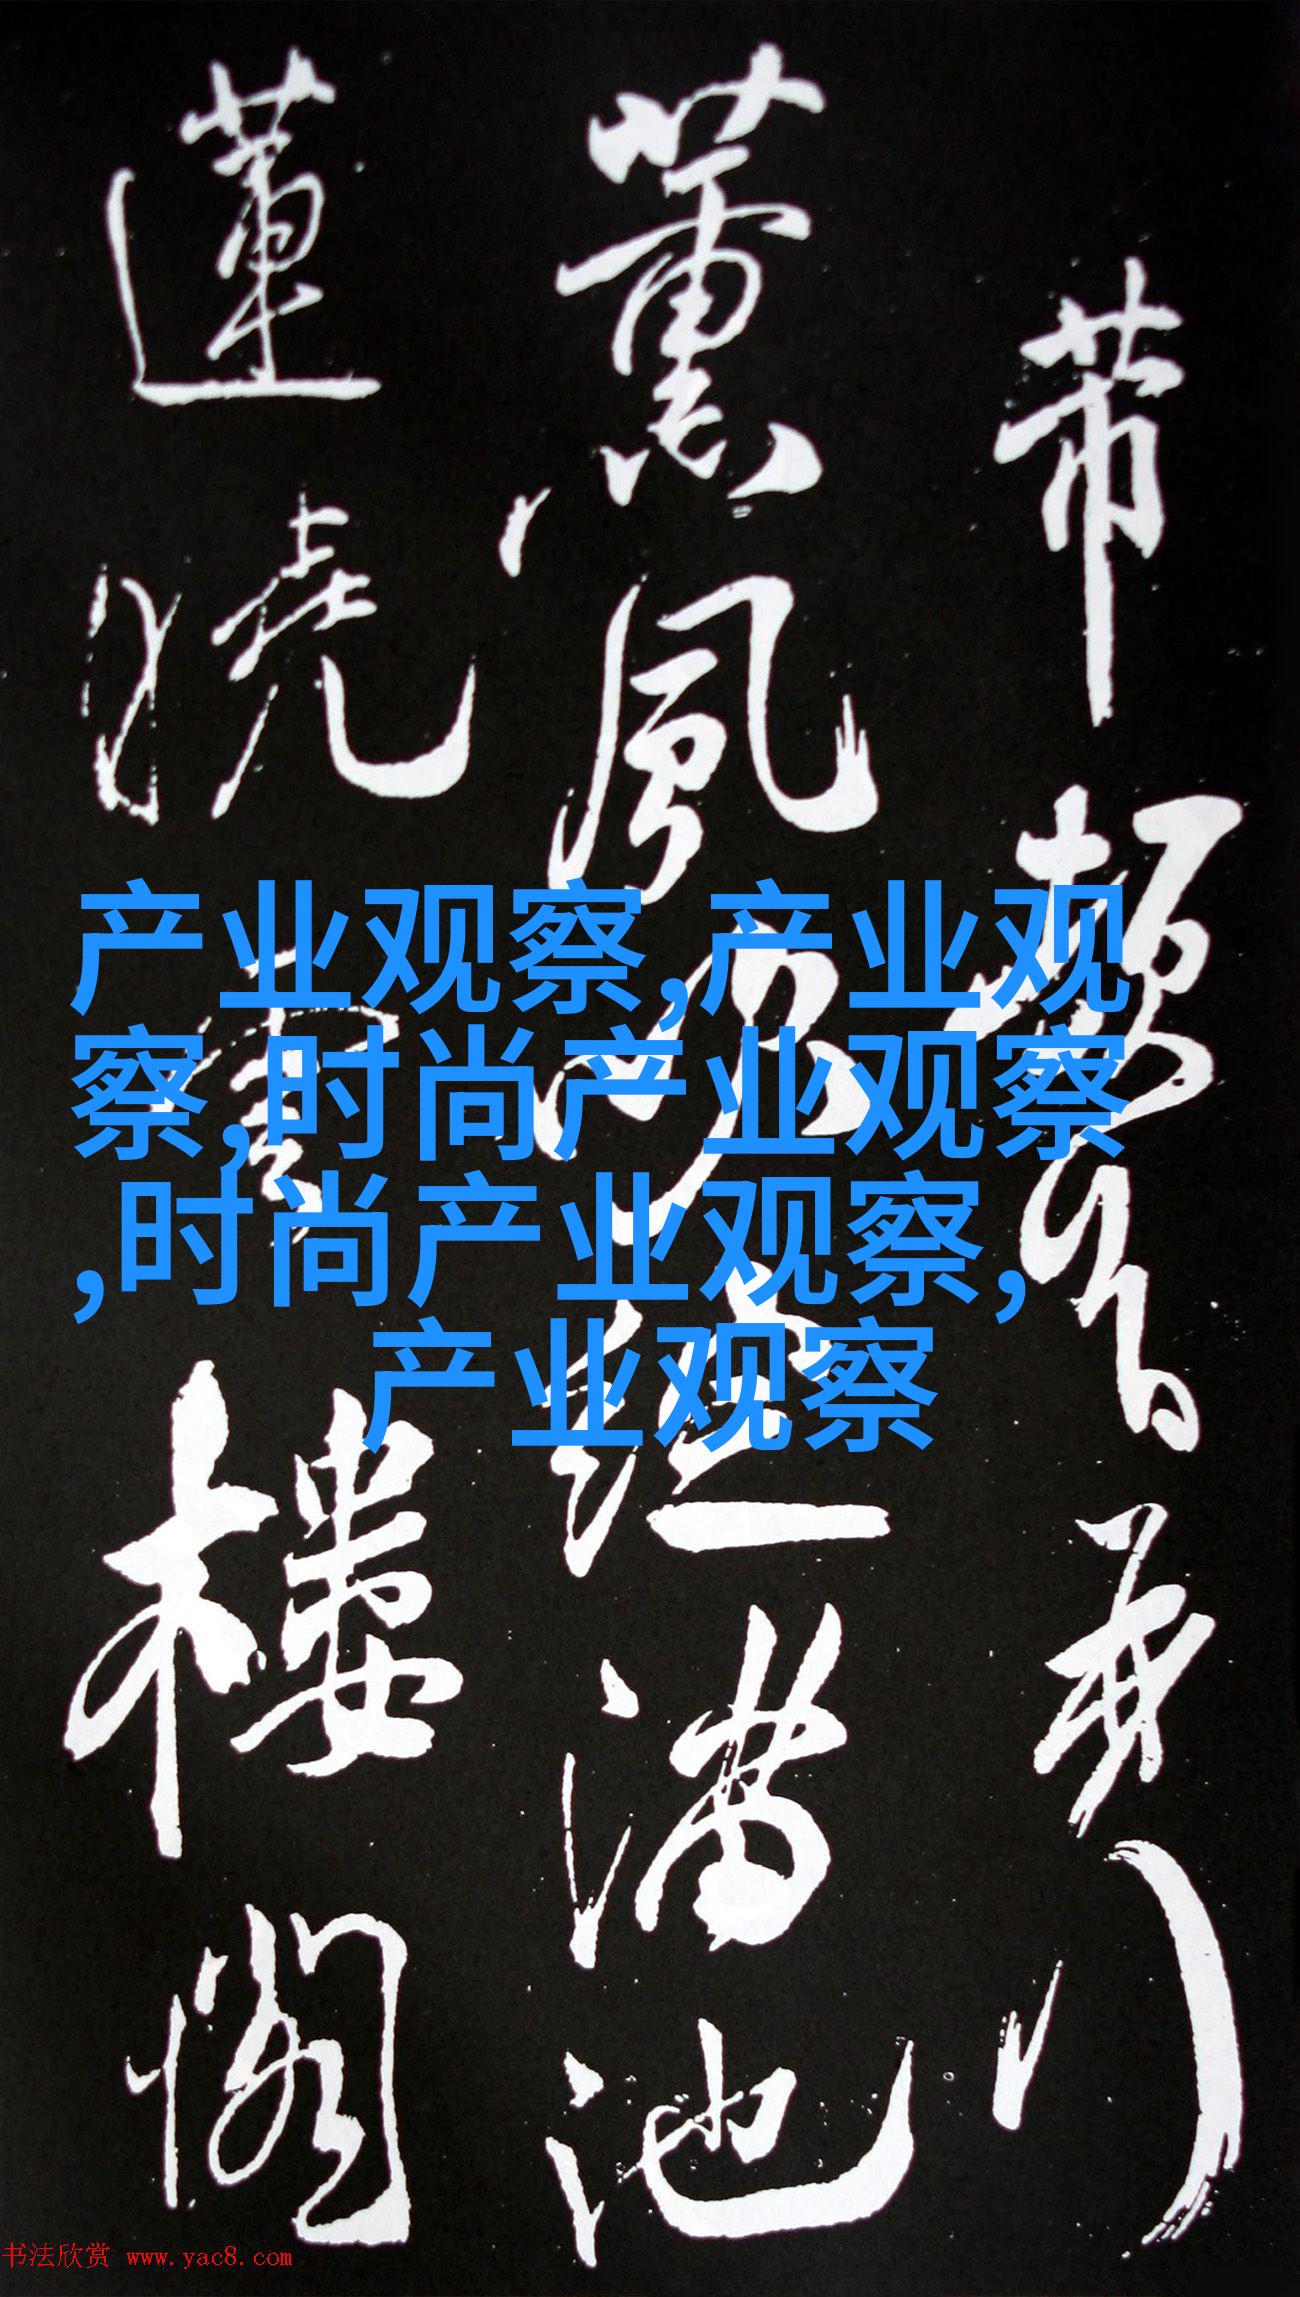 薰風滿池
蓮繞樓閣
产业观察,产业观
察,时尚产业观察
,时尚产业观察,
产业观察
书法欣赏 www.yac8.com